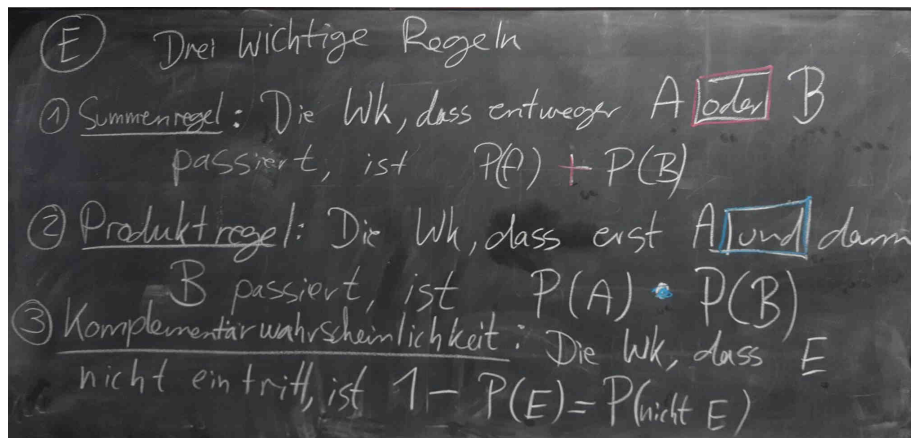 Ⓔ Drei wichtige Regeln
① Summenregel: Die Wk, dass entweger A oder B
passiert, ist P(A) + P(B)
② Produktregel: Die Wk, dass erst A und dann
B passiert, ist P(A) • P(B)
③ Komplementärwahrscheinlichkeit: Die Wk, dass E
nicht eintritt, ist 1 - P(E) = P(nicht E)